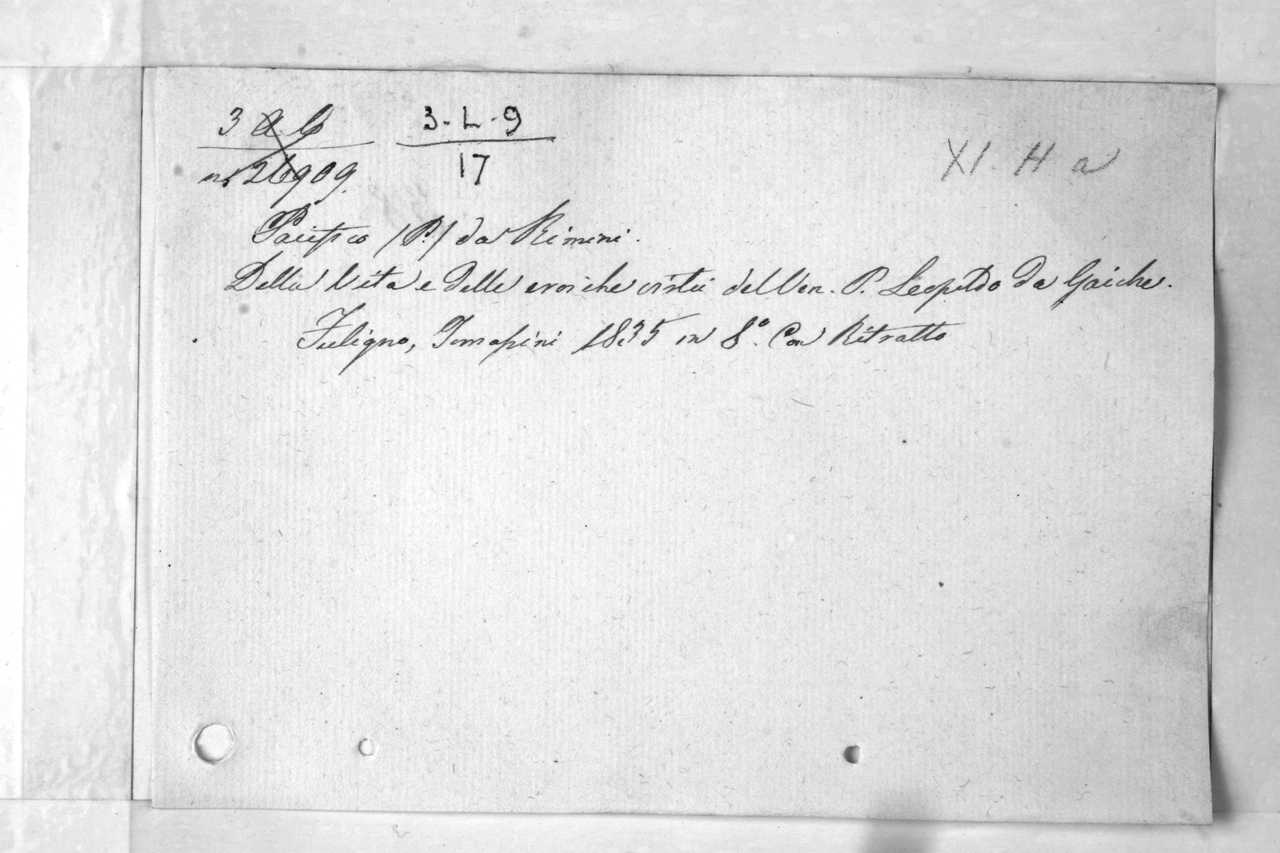 3 a b 3-L-9 XI. H a
nº 26909. 17
Pacifico (P.) da Rimini.
Della Vita e delle eroiche virtù del Ven. P. Leopoldo da Gaiche.
Fuligno, Tomassini 1835 in 8º. Con Ritratto